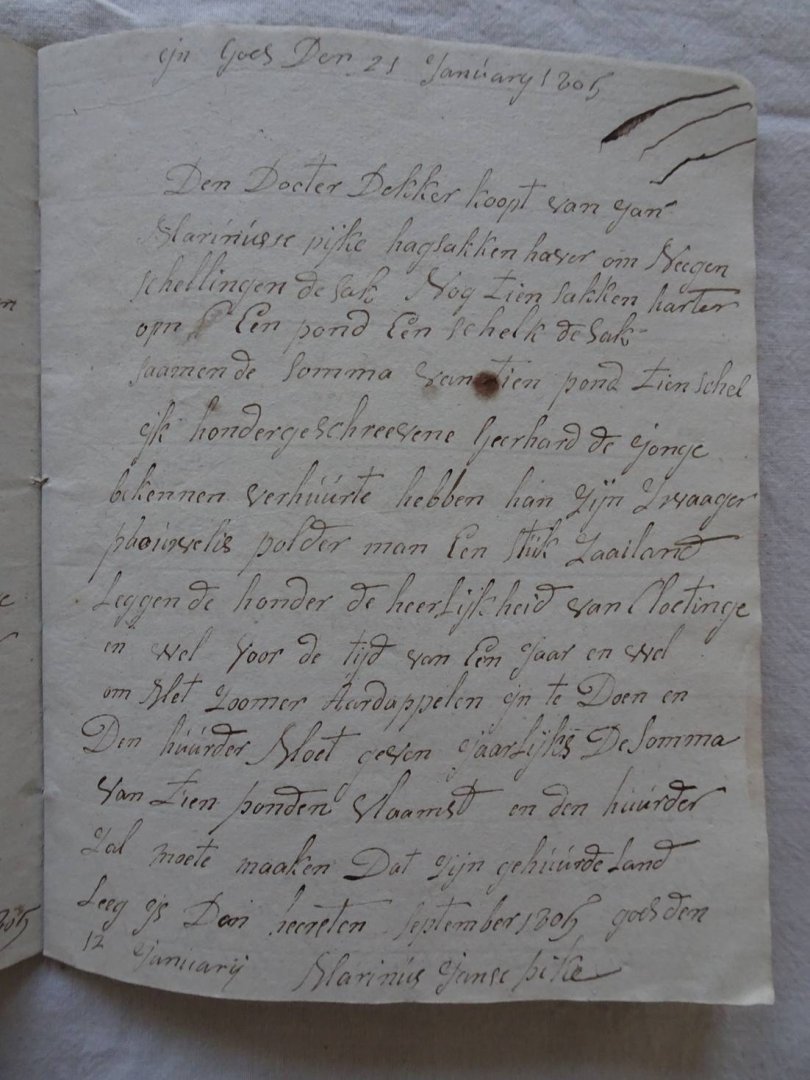 ijn Goes Den 21 Januarij 1805
Den Docter Dekker koopt van Jan
Marinusse pijke hagsakken haver om Neegen
schellingen de sak Nog tien sakken harter
opn Een pond Een schelk de sak
saamen de somma van tien pond tien schel
ijk hondergeschreevene Geerhard de Jonge
bekennen verhuurte hebben han zijn zwaager
phouwelis polder man Een stuk zaailand
Leggende honder de heerLijkheid van Cloetinge
en wel voor de tijd van Een Jaar en wel
om Met zoomer Aardappelen ijn te Doen en
Den huurder Moet geven JaarLijks De somma
van tien ponden vlaamst en den huurder
zal moete maaken Dat zijn gehuurde Land
Leeg ijs Den heersten september 1805 goes den
12 Januarij Marinus Janse pike